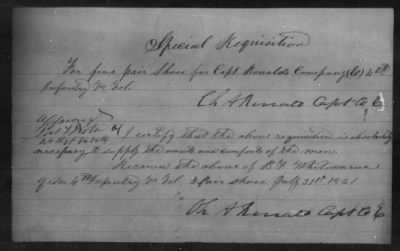 Special Requisition
For five pair Shoes for Capt Ronalds Company (E) 4th
Infantry Va Vol.
Ch A Ronald Capt Co E
Approved
I certify that the above requisition is absolutely
necessary to supply the wants and comforts of the men.
Received the above of
of 4th Infantry Va Vol 5 pair shoes July 31st 1861
Ch A Ronald Capt Co E